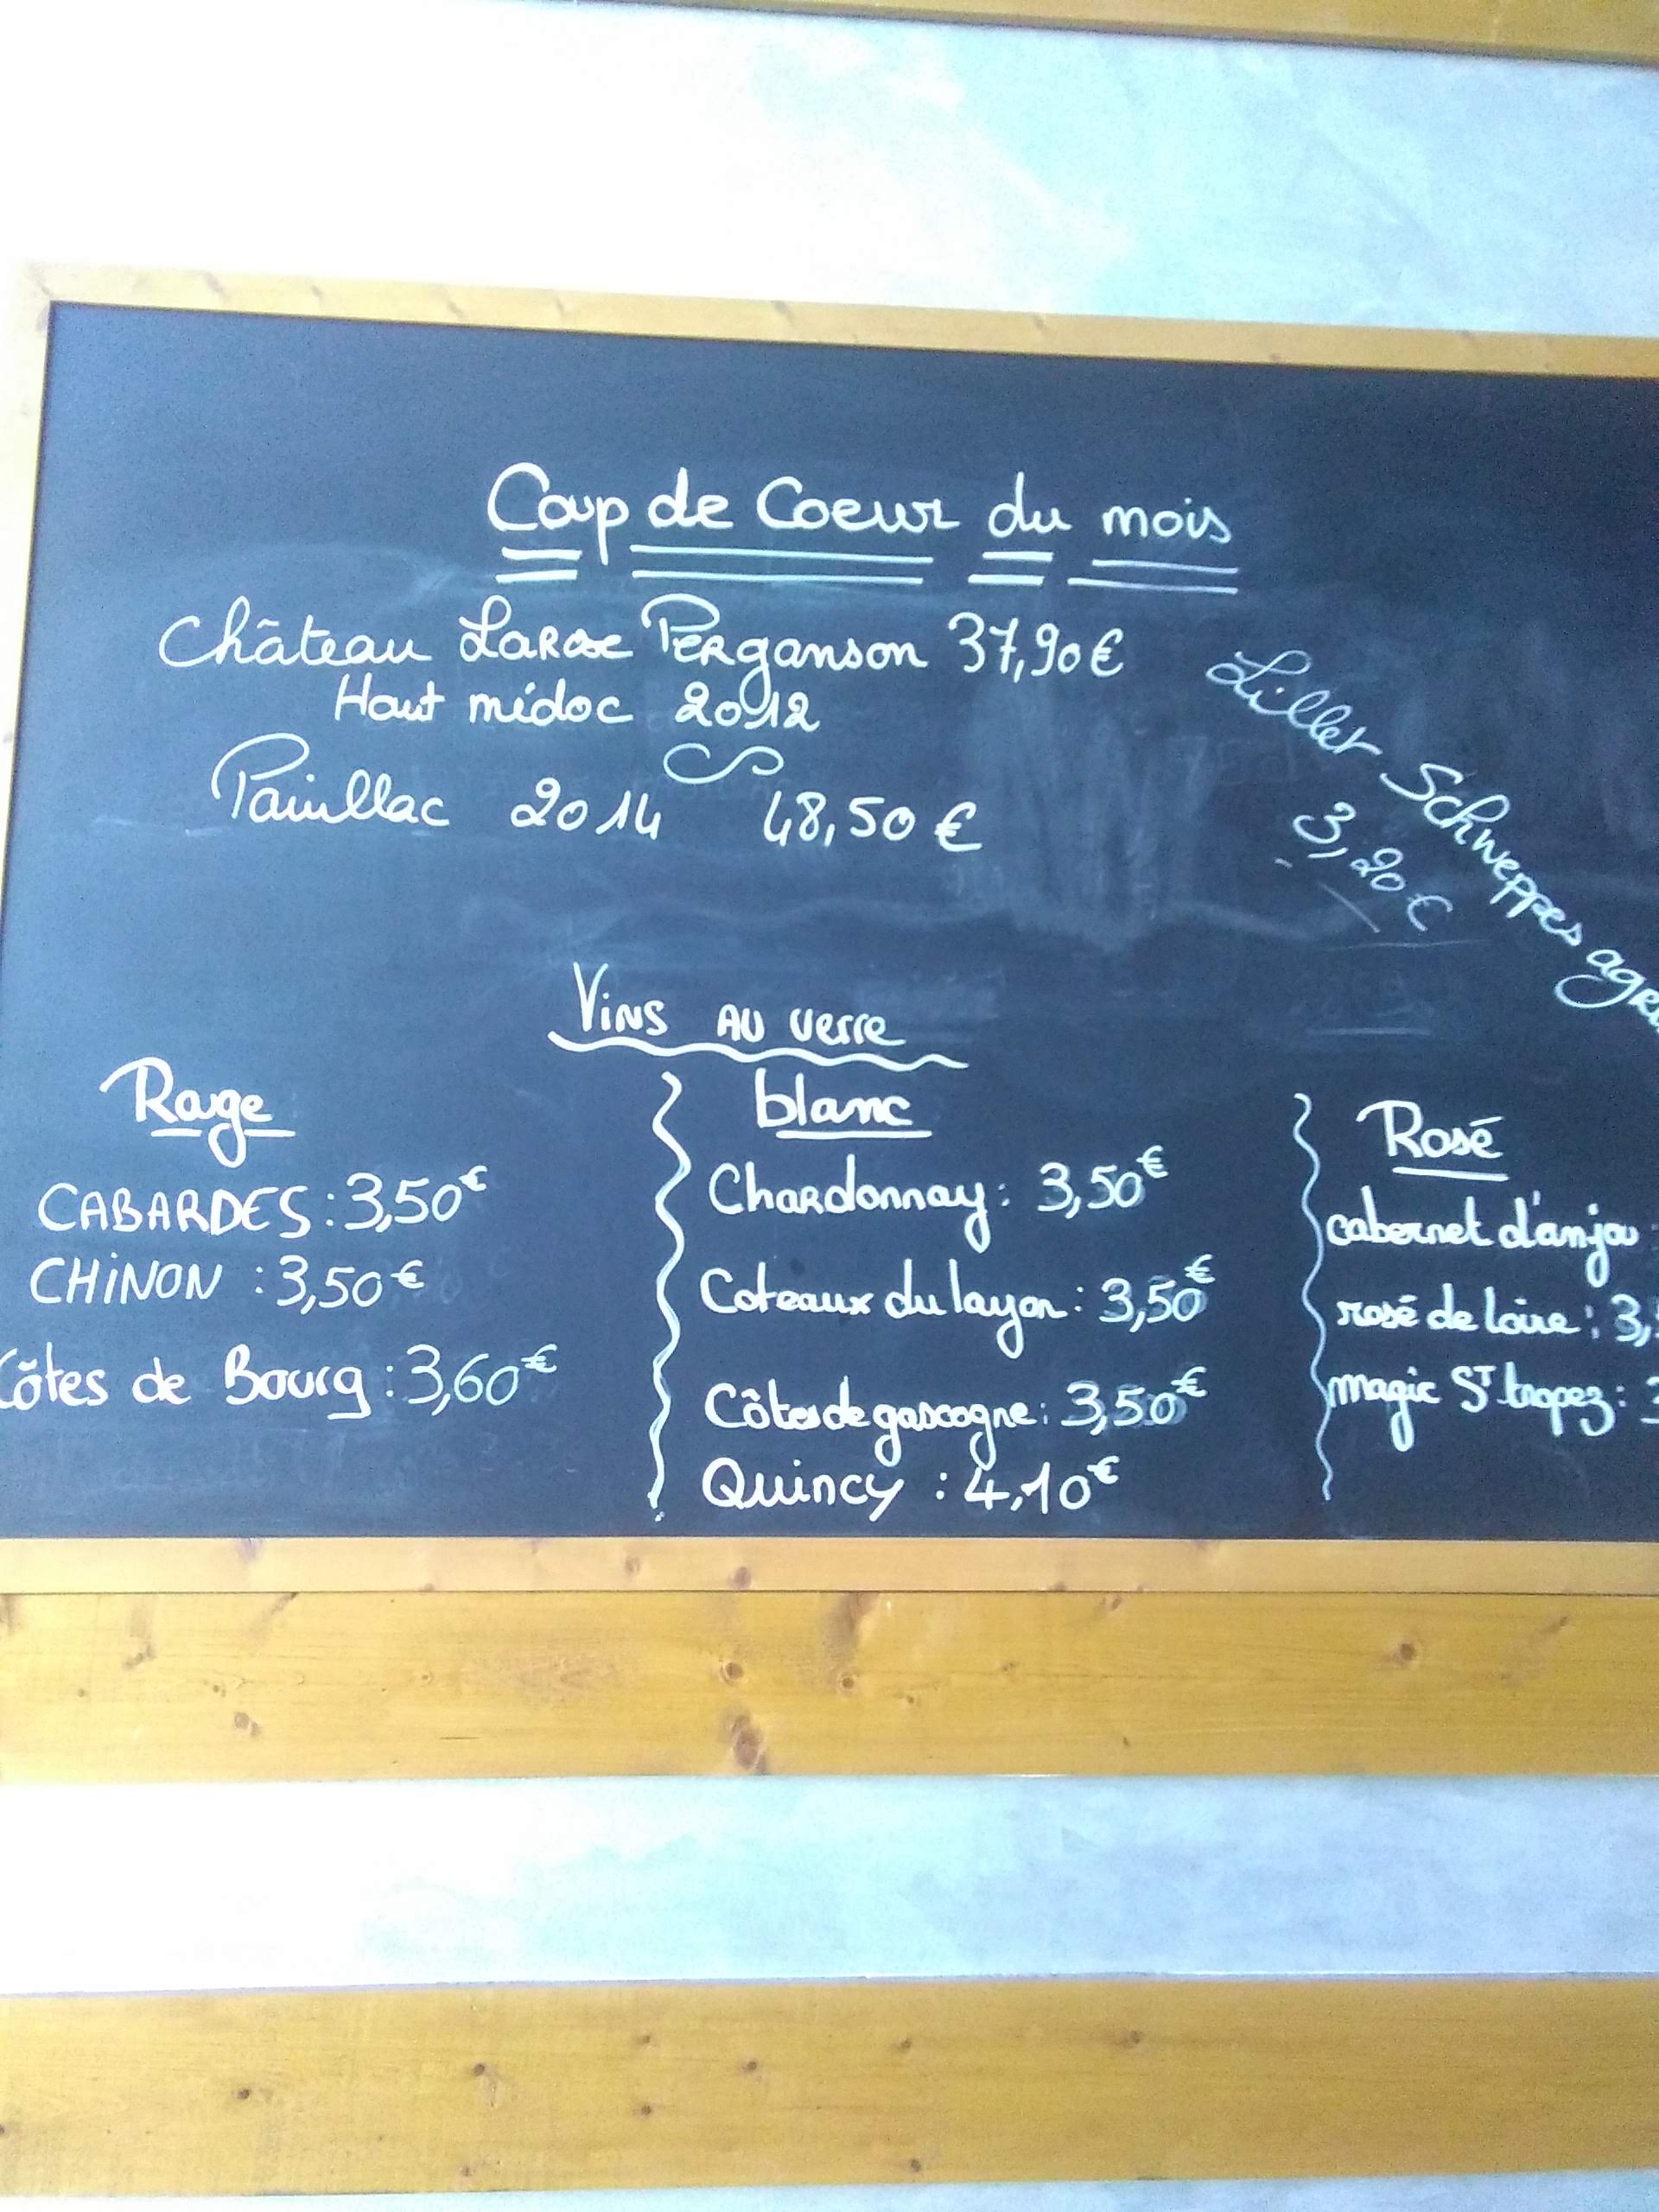 Coup de Coeur du mois
Château Larose Perganson 37,90€
Haut médoc 2012
Pauillac 2014 48,50 €
Lillet Schweppes agru
3,20€
Vins au verre
Rouge
CABARDES : 3,50€
CHiNON : 3,50€
Côtes de Bourg : 3,60€
blanc
Chardonnay : 3,50€
Coteaux du layon : 3,50€
Côtes de gascogne : 3,50€
Quincy : 4,10€
Rosé
cabernet d'anjou :
rosé de loire : 3,
magic ST tropez : 3